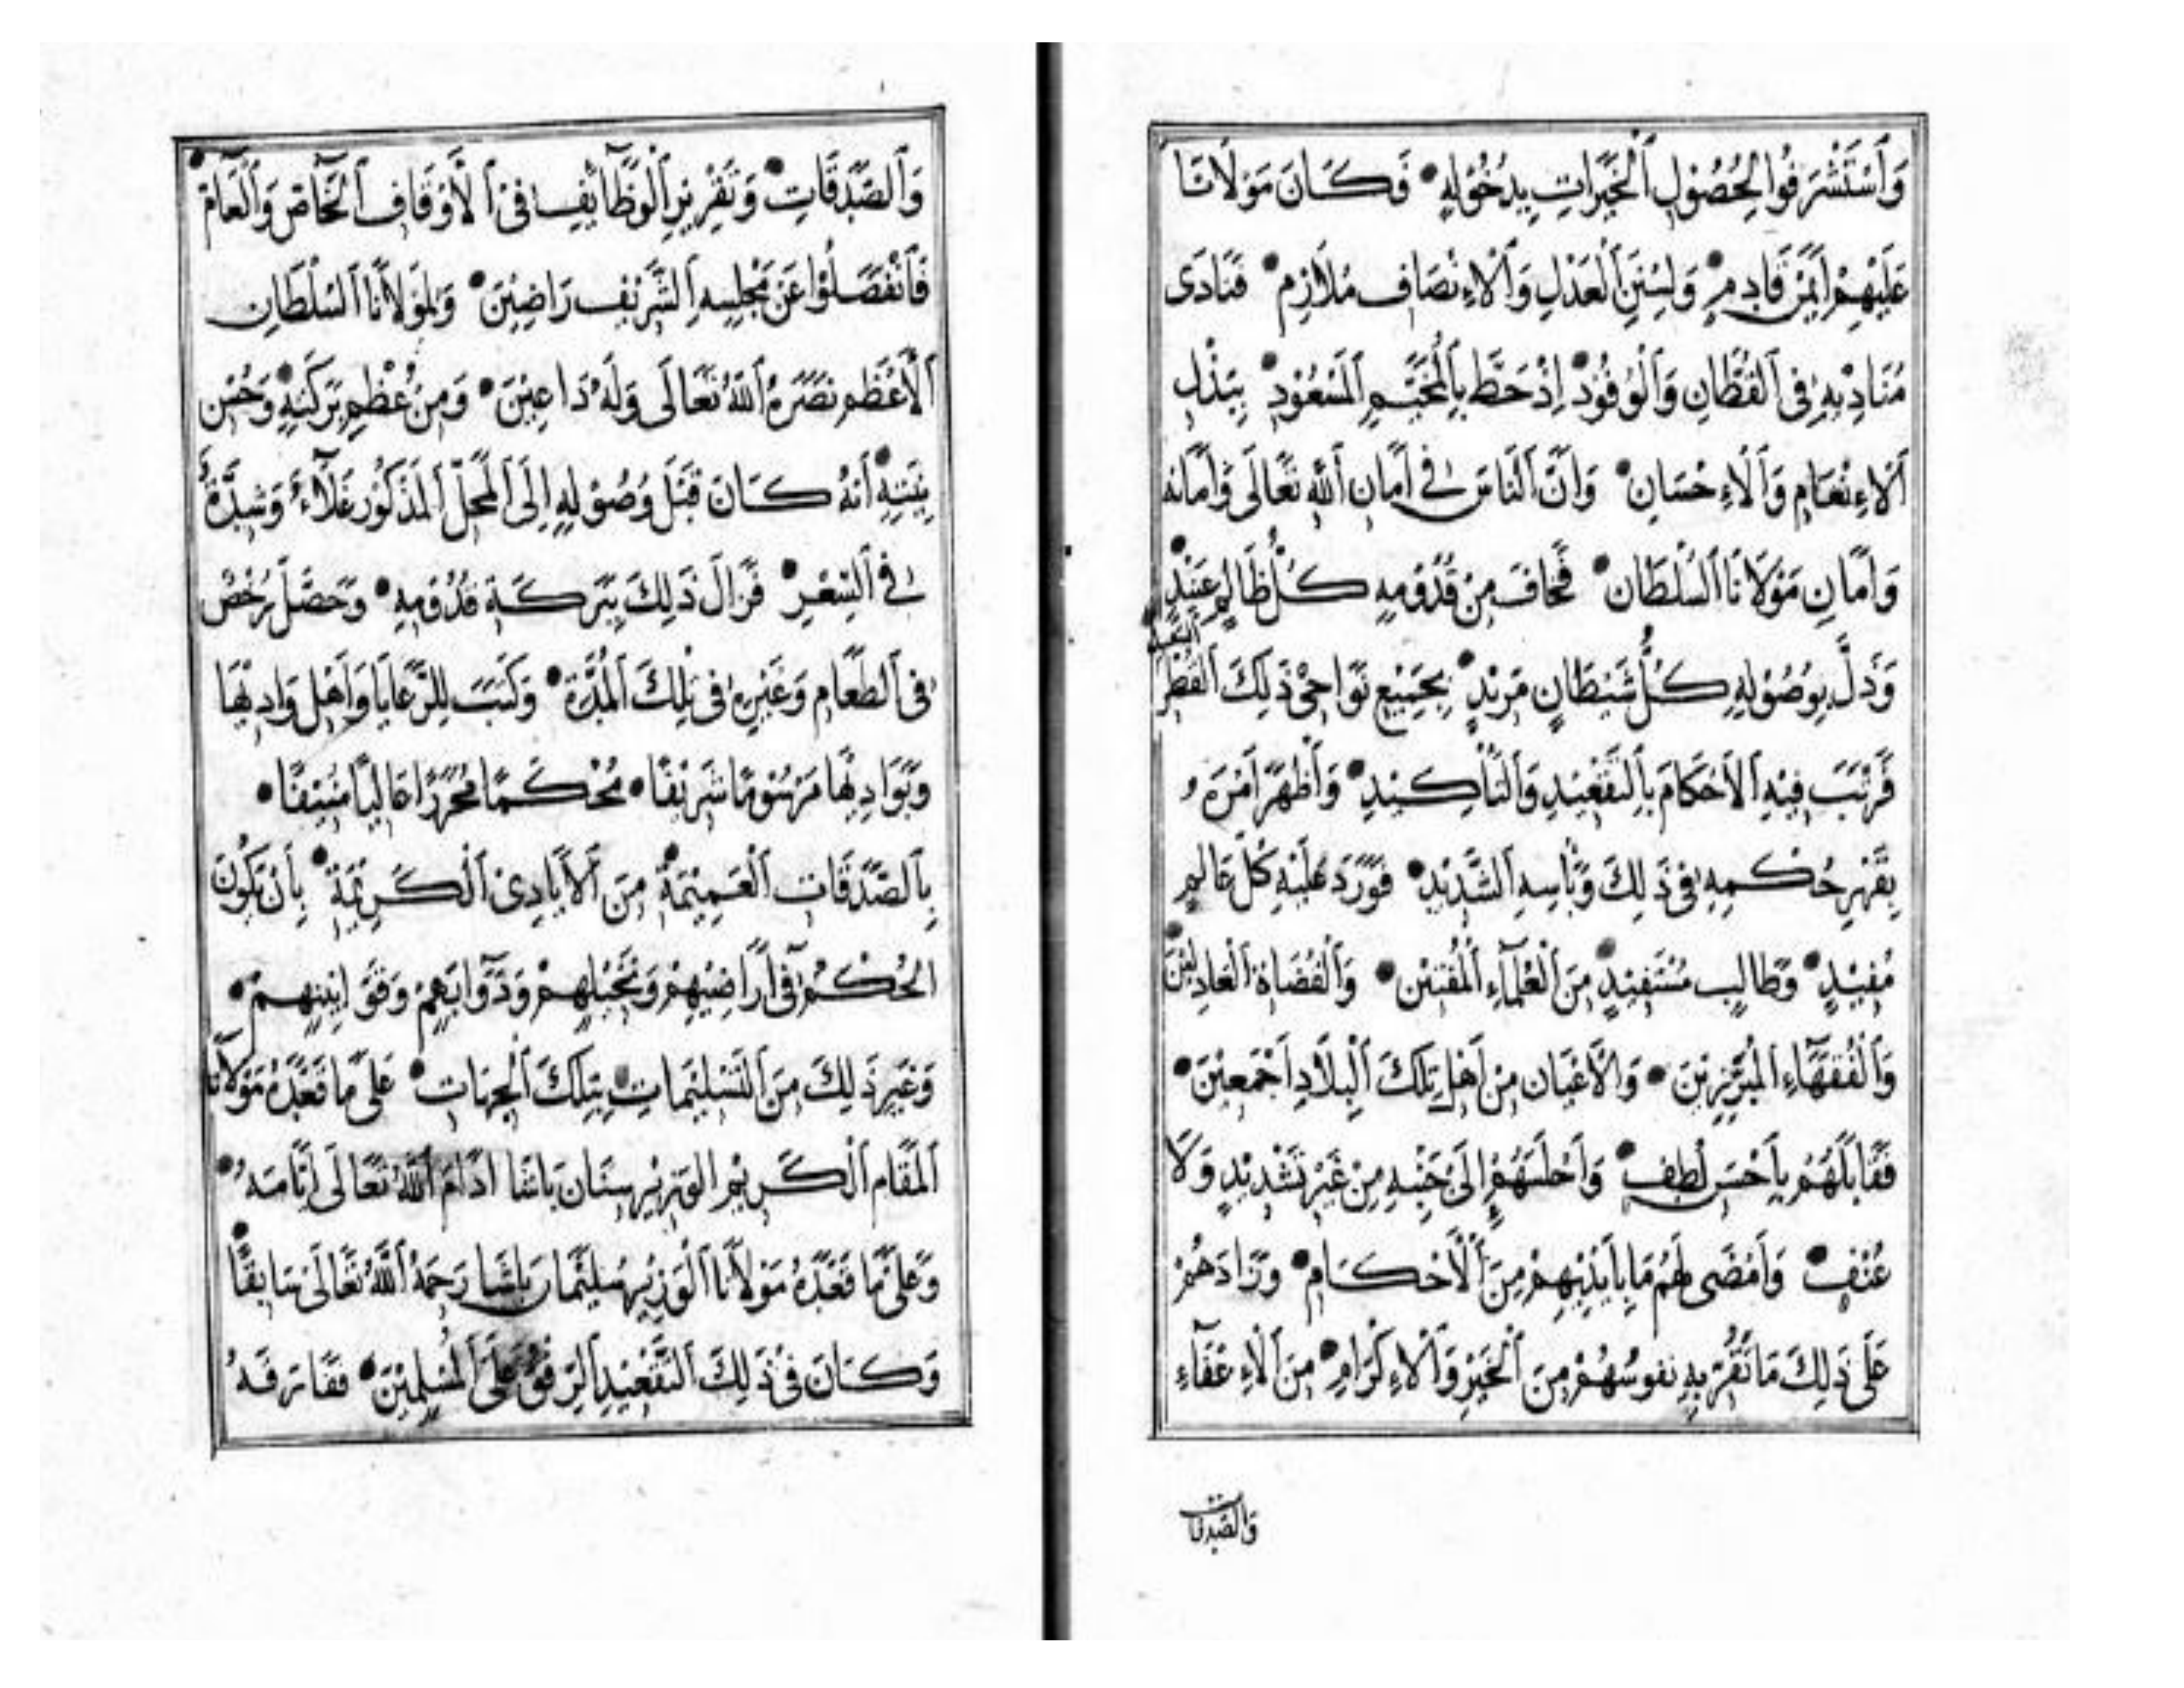 وَاسْتَشْرَفُوا لِحُصُولِ الْخَيْرَاتِ بِدُخُولِهِ • فَكَانَ مَوْلَانَا
عَلَيْهِمْ أَيْمَنَ قَادِمٍ • وَلِسُنَنِ الْعَدْلِ وَالْإِنْصَافِ مُلَازِم • فَنَادَى
مُنَادِيهِ فِي الْقُطَّانِ وَالْوُفُودِ • إِذْ حَطَّ بِالْمُخَيَّمِ الْمَسْعُودِ • بِبَذْلِ
الْإِنْعَامِ وَالْإِحْسَانِ • وَأَنَّ النَّاسَ فِي أَمَانِ اللَّهِ تَعَالَى وَأَمَانِهِ
وَأَمَانِ مَوْلَانَا السُّلْطَان • فَخَافَ مِنْ قُدُومِهِ كُلُّ ظَالِمٍ عَنِيْدٍ •
وَذَلَّ بِوُصُوْلِهِ كُلُّ شَيْطَانٍ مَرِيْدٍ • بِجَمِيْعِ نَوَاحِيْ ذَلِكَ الْقُطْرِ
فَرَتَّبَ فِيْهِ الْأَحْكَامَ بِالتَّقْعِيْدِ وَالتَّأْكِيْدِ • وَأَظْهَرَ أَمْرَهُ
بِقَهْرِ حُكْمِهِ فِي ذَلِكَ وَبَأْسِهِ الشَّدِيْدِ • فَوَرَدَ عَلَيْهِ كُلُّ عَالِمٍ
مُفِيْدٍ • وَطَالِبٍ مُسْتَفِيْدٍ • مِنَ الْعُلَمَاءِ الْمُفْتِيْنَ • وَالْقُضَاةِ الْعَادِلِيْنَ
وَالْفُقَهَاءِ الْمُبَرِّزِيْنَ • وَالْأَعْيَانِ مِنْ أَهْلِ تِلْكَ الْبِلَادِ أَجْمَعِيْنَ •
فَقَابَلَهُمْ بِأَحْسَنِ لُطْفٍ • وَأَجْلَسَهُمْ إِلَى جَنْبِهِ مِنْ غَيْرِ تَشْدِيْدٍ وَلَا
عُنْفٍ • وَأَمْضَى لَهُمْ مَا بِأَيْدِيْهِمْ مِنَ الْأَحْكَامِ • وَزَادَهُمْ
عَلَى ذَلِكَ مَا تَقَرُّ بِهِ نُفُوسُهُمْ مِنَ الْخَيْرِ وَالْإِكْرَامِ • مِنَ الْإِعْفَاءِ
وَالصَّدَقَاتِ
وَالصَّدَقَاتِ • وَتَقْرِيْرِ الْوَظَائِفِ فِي الْأَوْقَافِ الْخَاصِّ وَالْعَامِّ •
فَانْفَصَلُوْا عَنْ مَجْلِسِهِ الشَّرِيْفِ رَاضِيْنَ • وَلِمَوْلَانَا السُّلْطَانِ
الْأَعْظَمِ نَصَرَهُ اللَّهُ تَعَالَى وَلَهُ دَاعِيْنَ • وَمِنْ عُظْمِ بَرَكَتِهِ • وَحُسْنِ
نِيَّتِهِ • أَنَّهُ كَانَ قَبْلَ وُصُوْلِهِ إِلَى الْمَحَلِّ الْمَذْكُوْرِ غَلَاءٌ وَشِدَّةٌ
فِي السِّعْرِ • فَزَالَ ذَلِكَ بِبَرَكَةِ قُدُوْمِهِ • وَحَصَلَ رُخْصٌ
فِي الطَّعَامِ وَغَيْرِهِ فِي تِلْكَ الْمُدَّةِ • وَكَتَبَ لِلرَّعَايَا وَأَهْلِ وَادِيْهَا
وَبَوَادِيْهَا مَرْسُوْمًا شَرِيْفًا • مُحْكَمًا مُحَرَّرًا عَالِيًا مُنِيْفًا •
بِالصَّدَقَاتِ الْعَمِيْمَةِ • مِنَ الْأَيَادِيْ الْكَرِيْمَةِ • بِأَنْ يَكُوْنَ
الْحُكْمُ فِي أَرَاضِيْهِمْ وَنَخِيْلِهِمْ وَدَوَابِّهِمْ وَقَوَانِيْنِهِمْ •
وَغَيْرِ ذَلِكَ مِنَ التَّسْلِيْمَاتِ • بِتِلْكَ الْجِهَاتِ • عَلَى مَا قَعَّدَهُ مَوْلَانَا
الْمَقَامِ الْكَرِيْمِ الْوَزِيْرِ سِنَان بَاشَا أَدَامَ اللَّهُ تَعَالَى أَيَّامَهُ •
وَعَلَى مَا قَعَّدَهُ مَوْلَانَا الْوَزِيْرِ سُلَيْمَان بَاشَا رَحِمَهُ اللَّهُ تَعَالَى سَابِقًا •
وَكَانَ فِيْ ذَلِكَ التَّقْعِيْدِ الرِّفْقُ عَلَى الْمُسْلِمِيْنَ •